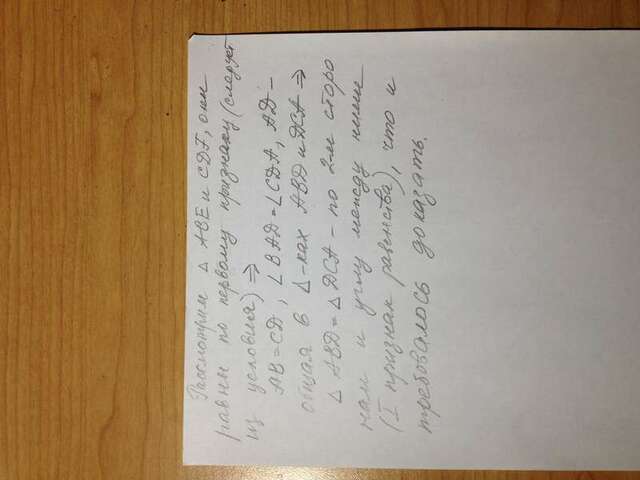 Рассмотрим △ ABE и CDF, они
равны по первому признаку (следует
из условия) ⇒
AB=CD, ∠BAD=∠CDA, AD-
общая в △-ках ABD и DCA ⇒
△ ABD=△ DCA - по 2м сторо
нам и углу между ними
(I признак равенства), что и
требовалось доказать.